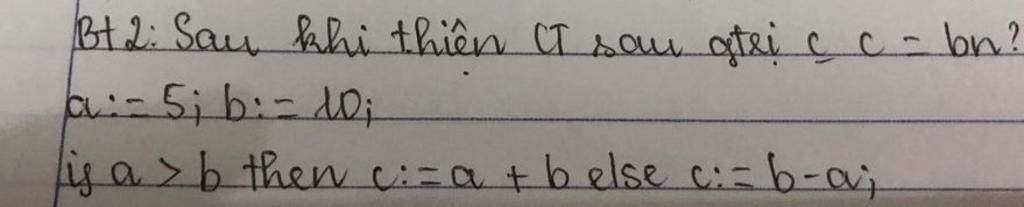 Bt 2: Sau khi thiện CT sau gtrị c c = bn?
a:= 5; b:= 10;
if a > b then c:= a + b else c:= b - a;